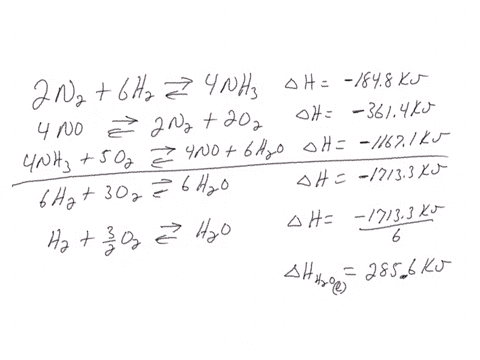 2N₂ + 6H₂ ⇌ 4NH₃ ΔH = -184.8 KJ
4NO ⇌ 2N₂ + 2O₂ ΔH = -361.4 KJ
4NH₃ + 5O₂ ⇌ 4NO + 6H₂O ΔH = -1167.1 KJ
6H₂ + 3O₂ ⇌ 6H₂O ΔH = -1713.3 KJ
H₂ + 3/2 O₂ ⇌ H₂O ΔH = -1713.3 KJ / 6
ΔH H₂O(l) = 285.6 KJ